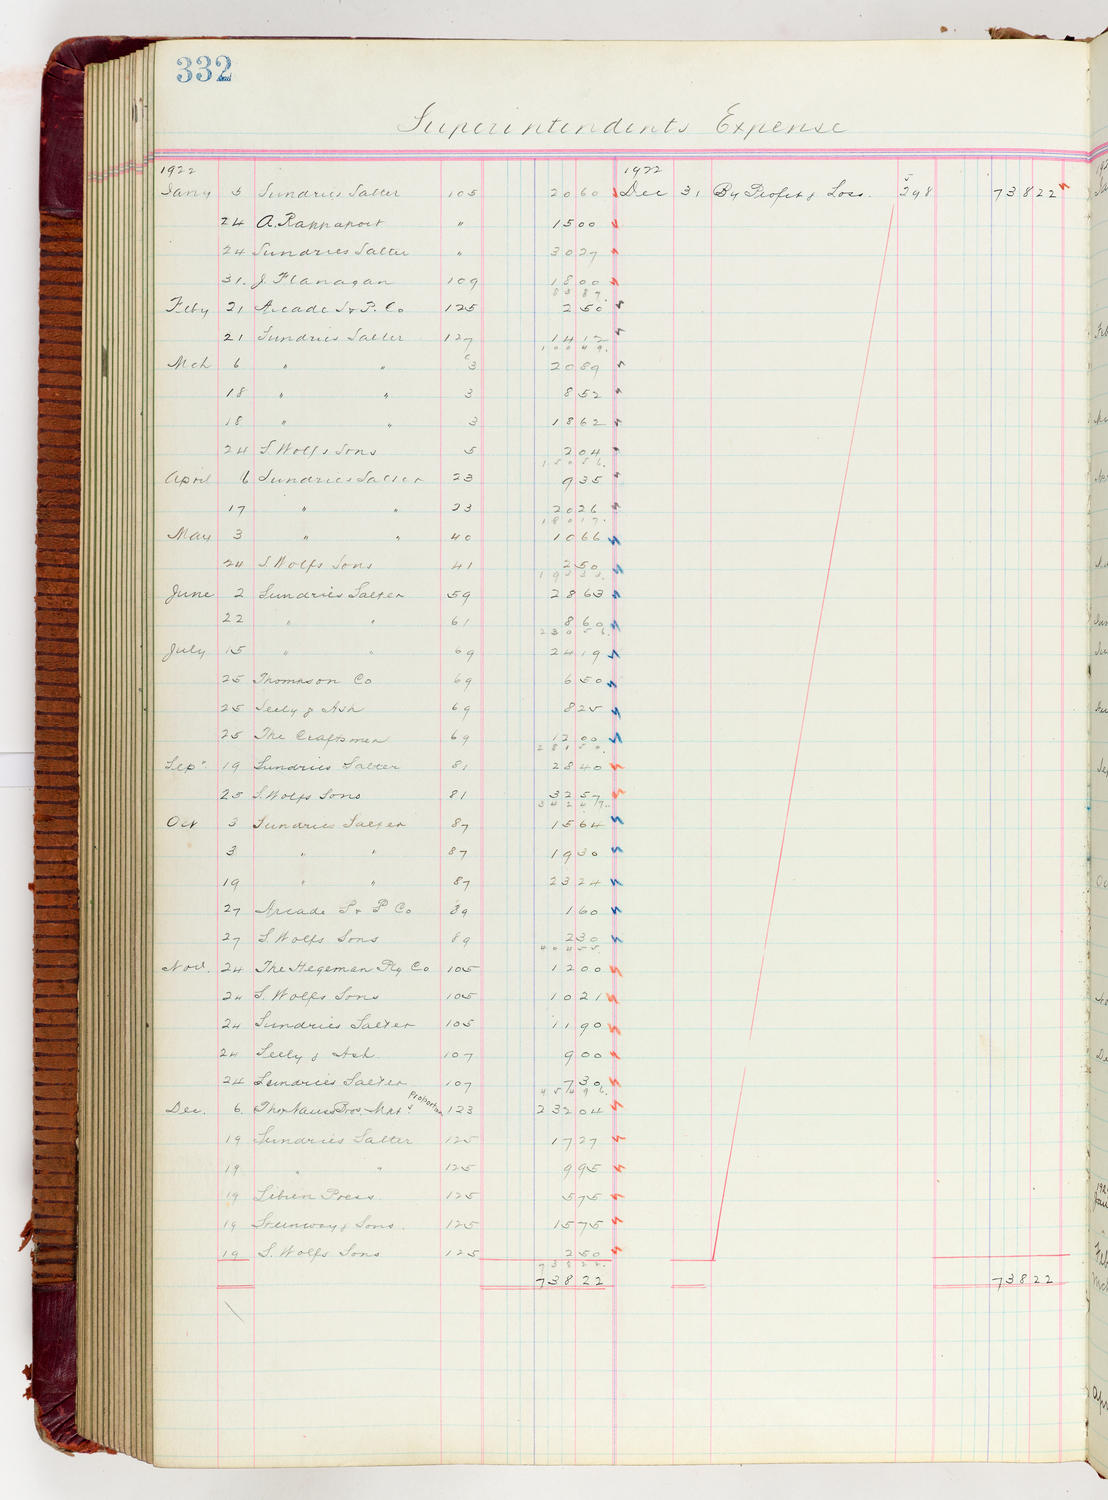 332
Superintendents Expense
1922 1922
Jany 5 Sundries Salter 105 2060 Dec 31 By Profit & Loss. J 298 73822
24 A. Rappaport " 1500
24 Sundries Salter " 3027
31. J. Flanagan 109 1800
8387.
Feby 21 Arcade S & P. Co 125 250
21 Sundries Salter 127 1412
10049.
Mch 6 " " C 3 2089
18 " " 3 852
18 " " 3 1862
24 S. Wolfs Sons 5 204
15056.
April 6 Sundries Salter 23 935
17 " " 23 2026
18017.
May 3 " " 40 1066
24 S. Wolfs Sons 41 250
19333.
June 2 Sundries Salter 59 2863
22 " " 61 860
23056.
July 15 " " 69 2419
25 Thompson Co 69 650
25 Seely & Ash 69 825
25 The Craftsmen 69 1200
28150.
Sep" 19 Sundries Salter 81 2840
25 S. Wolfs Sons 81 3257
34247.
Oct 3 Sundries Salter 87 1564
3 " " 87 1930
19 " " 87 2324
27 Arcade S & P Co 89 160
27 S. Wolfs Sons 89 230
40455.
Nov. 24 The Hegeman Ptg Co 105 1200
24 S. Wolfs Sons 105 1021
24 Sundries Salter 105 1190
24 Seely & Ash. 107 900
24 Sundries Salter 107 730
45496.
Dec. 6. Bros. Mkt Proportion 123 23204
19 Sundries Salter 125 1727
19 " " 125 995
19 Press. 125 575
19 Steinway & Sons. 125 1575
19 S. Wolfs Sons 125 250
73822.
73822 73822